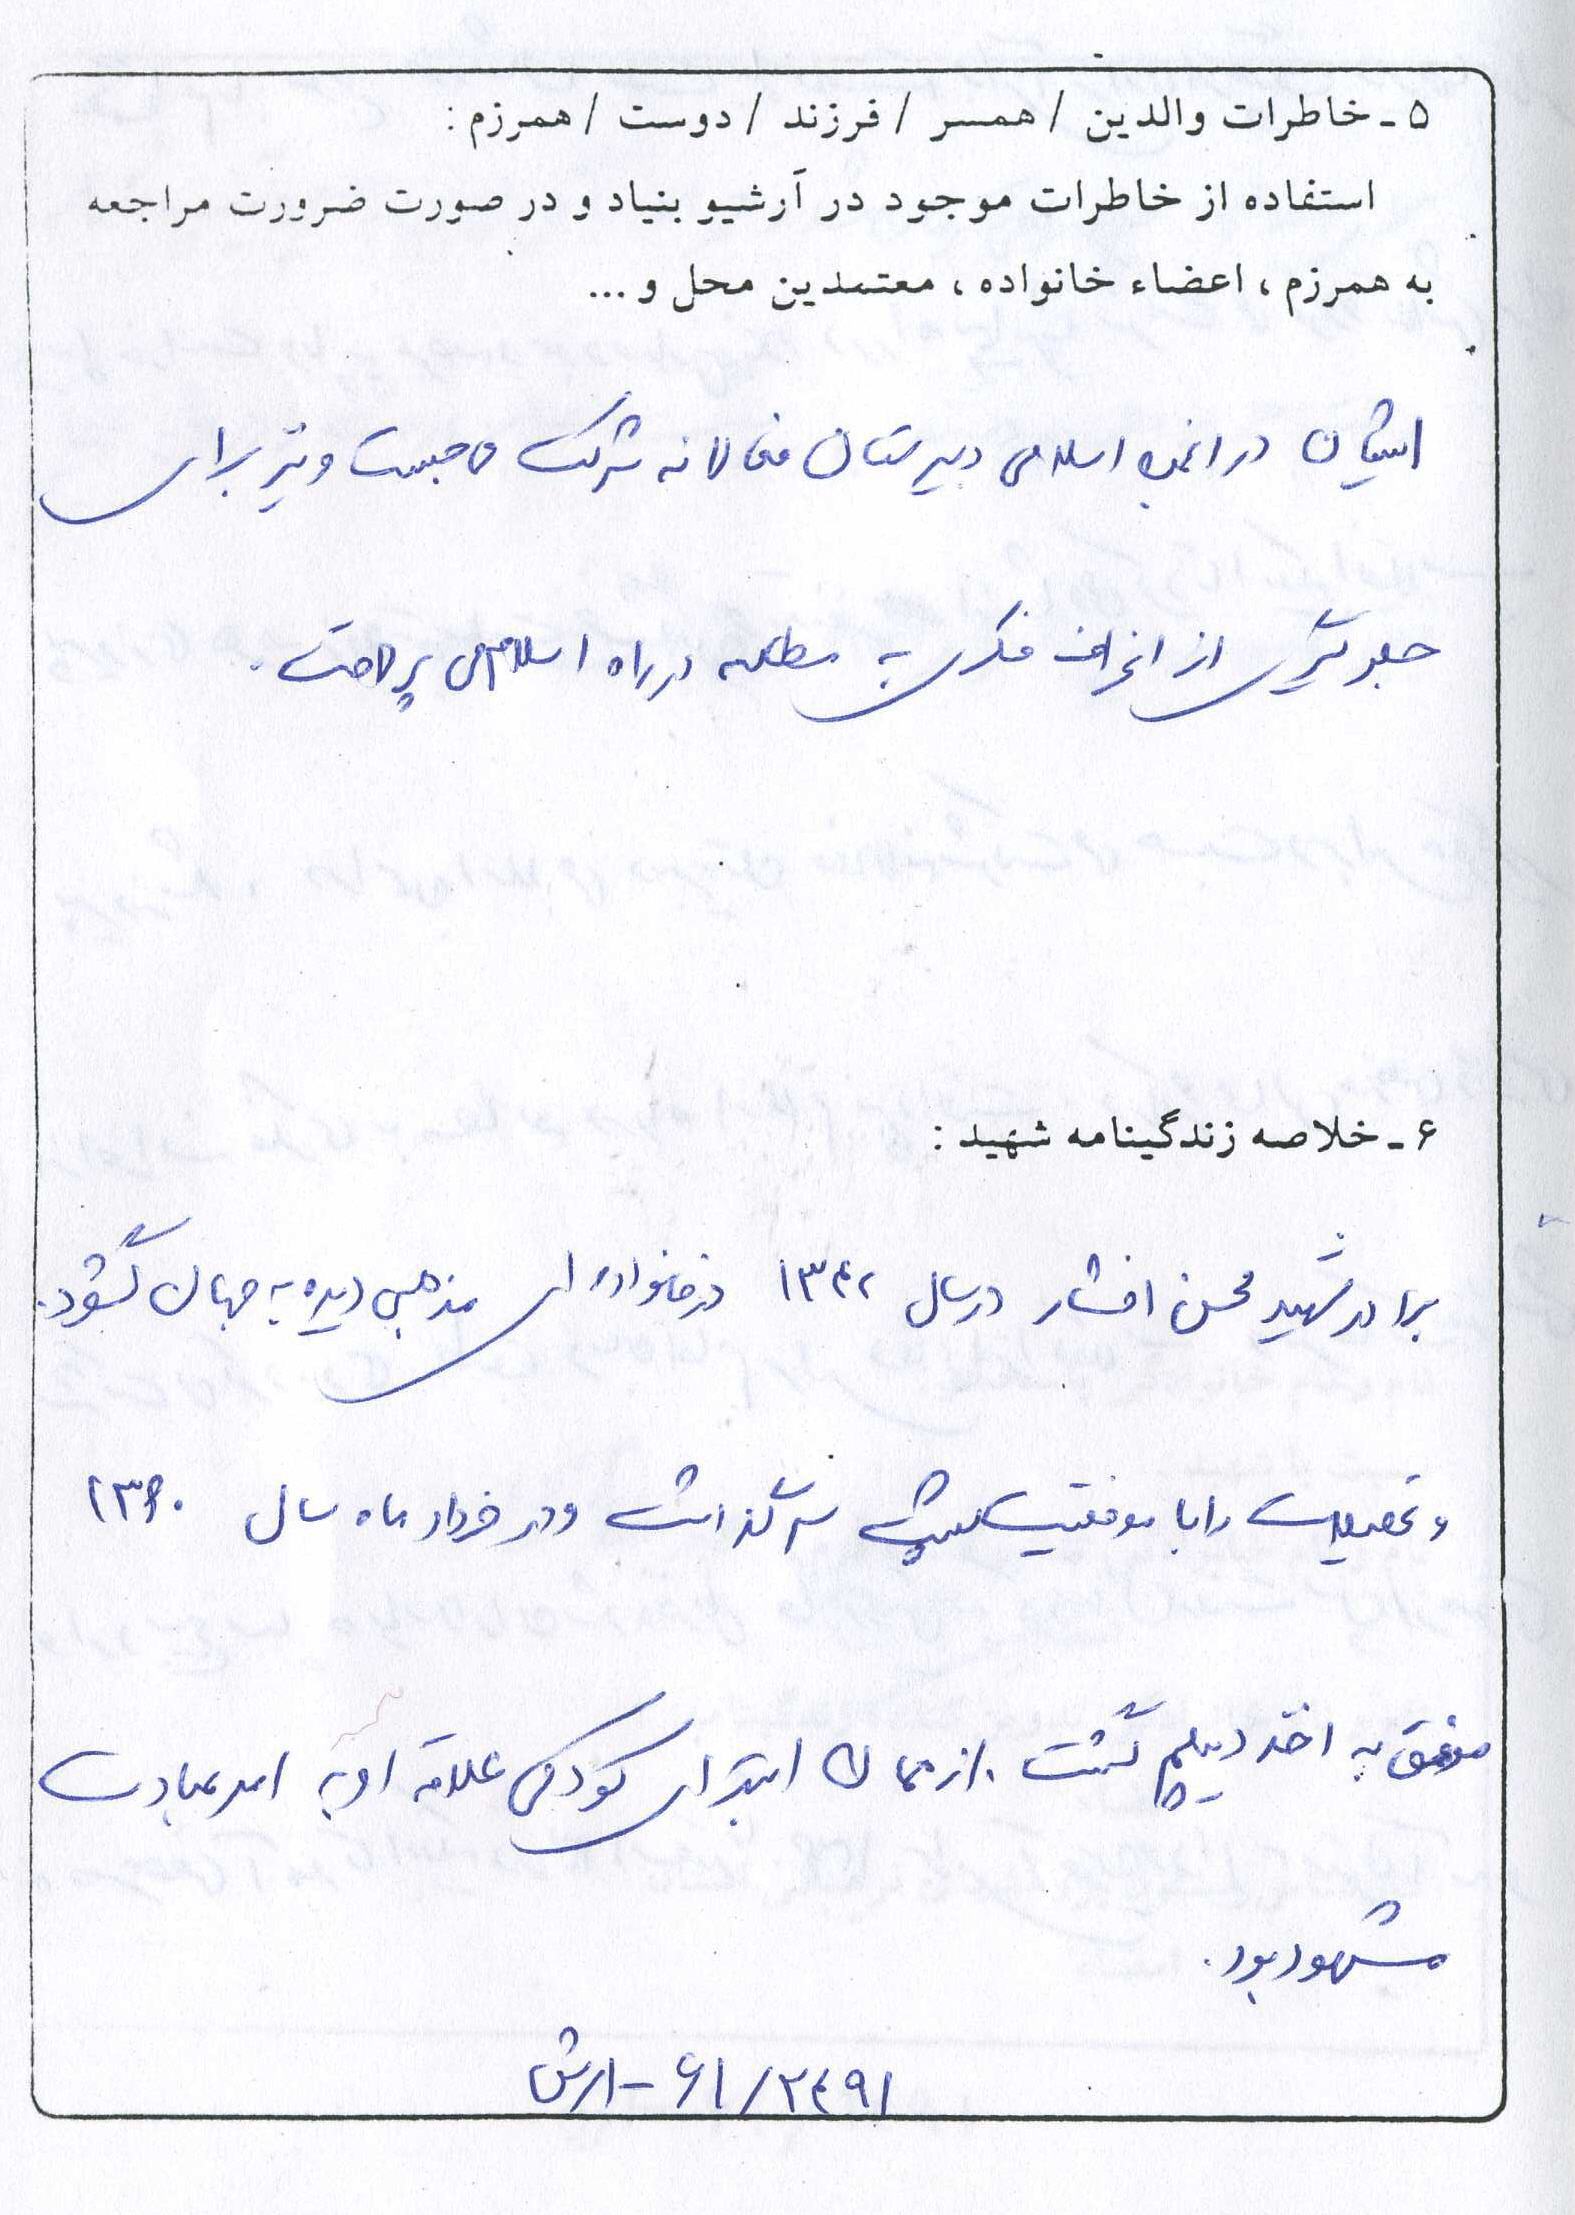 ۵ - خاطرات والدین / همسر / فرزند / دوست / همرزم :
استفاده از خاطرات موجود در آرشیو بنیاد و در صورت ضرورت مراجعه
به همرزم ، اعضاء خانواده ، معتمدین محل و ...
ایشان در انجمن اسلامی دبیرستان فعالانه شرکت می جست و نیز برای
جلوگیری از انحراف فکری به مطالعه در راه اسلام می پرداخت .
۶ - خلاصه زندگینامه شهید :
برادر شهید محسن افشار در سال ۱۳۴۲ در خانواده ای مذهبی دیده به جهان گشود .
و تحصیلات را با موفقیت پشت سر گذاشت و در خرداد ماه سال ۱۳۶۰
موفق به اخذ دیپلم گشت . از همان ابتدای کودکی علاقه او به امر عبادت
مشهود بود .
۶۱/۲۴۹۱ - ارتش